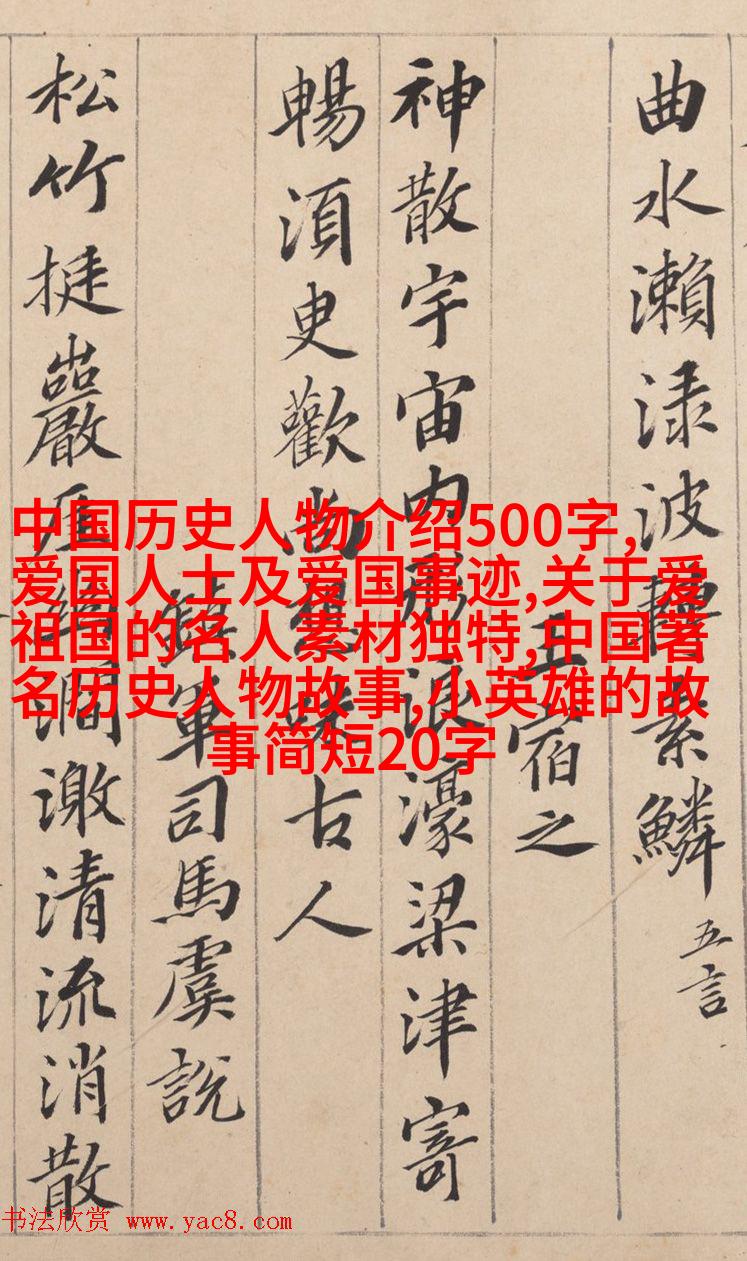 曲水瀨渌波轉素鱗 五言
王宿之
神散宇宙内形浪濠梁津寄
暢湏臾歡尚想味古人
鎮軍司馬虞説
松竹挺巖崖幽澗激清流消散
中国历史人物介绍500字,
爱国人士及爱国事迹,关于爱
祖国的名人素材独特,中国著
名历史人物故事,小英雄的故
事简短20字
书法欣赏 www.yac8.com